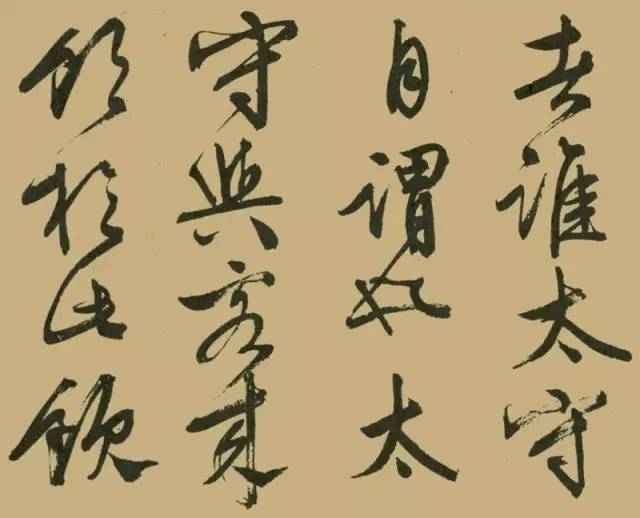 者谁太守
自谓也太
守与客来
饮於此饮